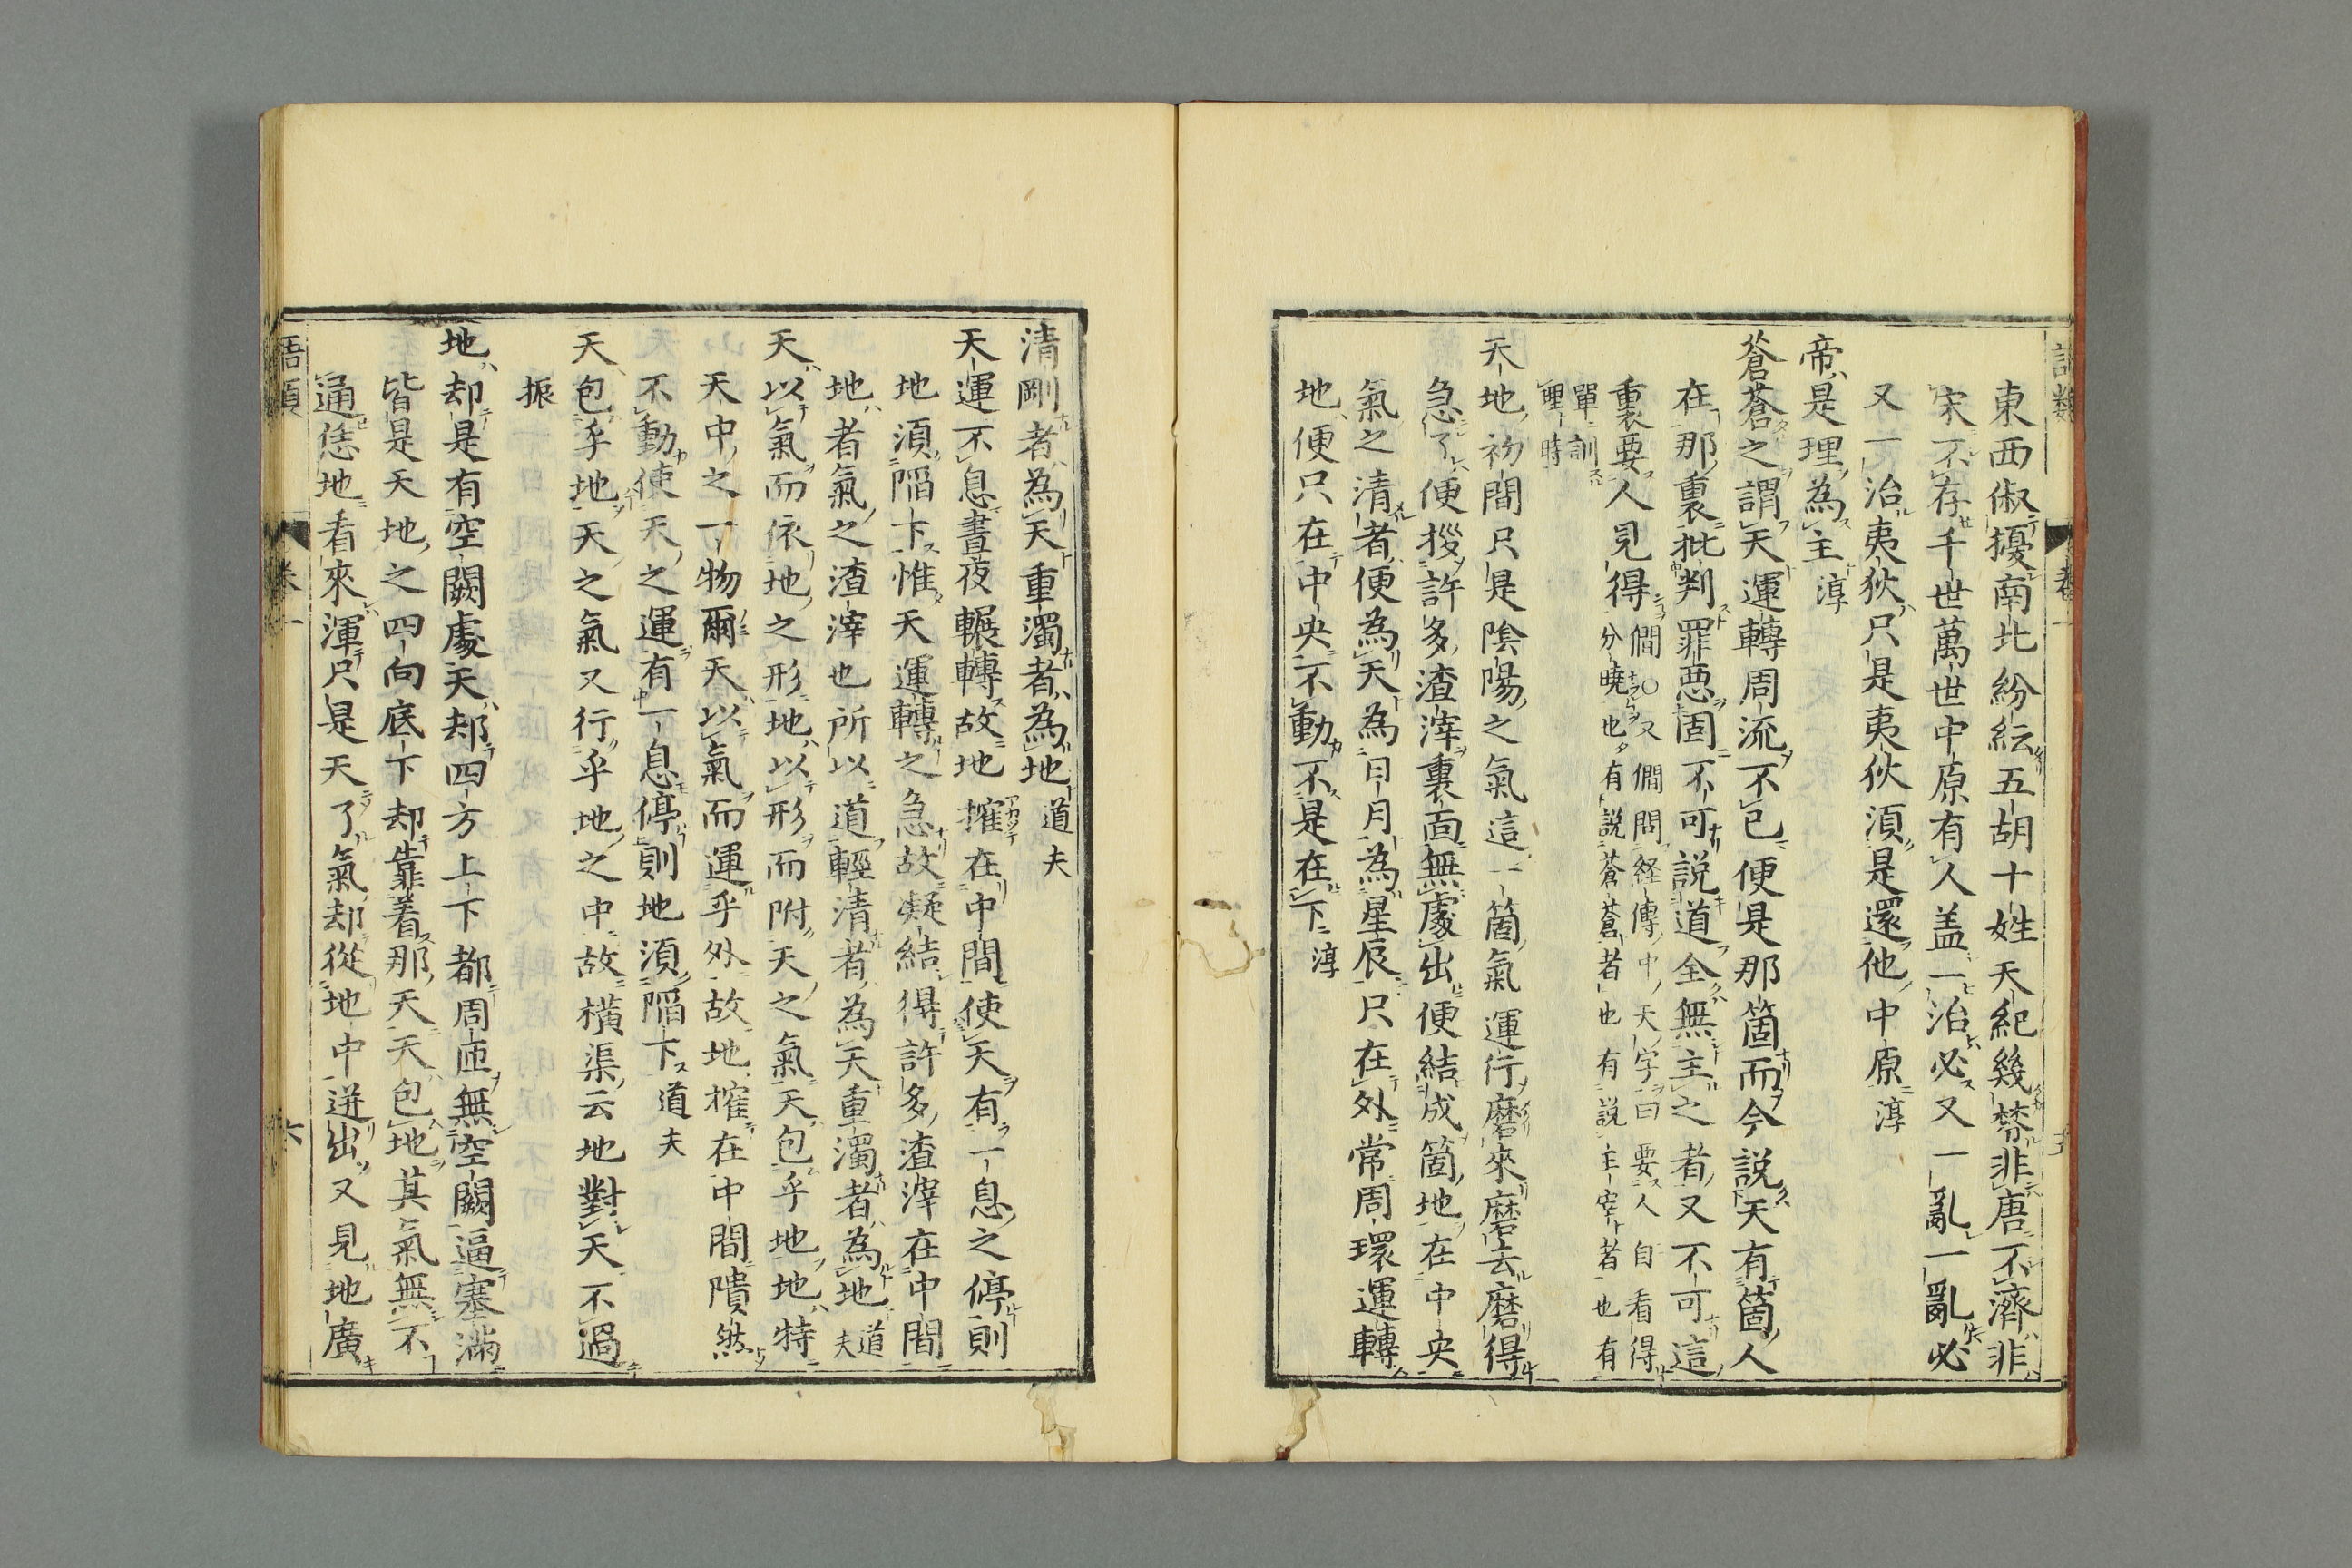 語類
卷一
東西俶擾南北紛紜五胡十姓天紀幾棼非唐不濟非
宋不存千世萬世中原有人盖一治必又一亂一亂必
又一治夷狄只是夷狄須是還他中原淳
帝是理為主淳
蒼蒼之謂天運轉周流不已便是那箇而今説天有箇人
在那裏批判罪惡固不可説道全無主之者又不可這
裏要人見得僴〇又僴問經傳中天字曰要人自看得
分曉也有説蒼蒼者也有説主宰者也有
單訓
理時
天地初間只是陰陽之氣這一箇氣運行磨來磨去磨得
急了便拶許多渣滓裏面無處出便結成箇地在中央
氣之清者便為天為日月為星辰只在外常周環運轉
地便只在中央不動不是在下淳
清剛者為天重濁者為地道夫
天運不息晝夜輾轉故地搉在中間使天有一息之停則
地須陷下惟天運轉之急故凝結得許多渣滓在中間
地者氣之渣滓也所以道輕清者為天重濁者為地道
夫
天以氣而依地之形地以形而附天之氣天包乎地地特
天中之一物爾天以氣而運乎外故地搉在中間隤然
不動使天之運有一息停則地須陷下道夫
天包乎地天之氣又行乎地之中故橫渠云地對天不過
振
地却是有空闕處天却四方上下都周匝無空闕逼塞滿
皆是天地之四向底下却靠着那天天包地其氣無不
通恁地看來渾只是天了氣却從地中迸出又見地廣
語類
卷一
六